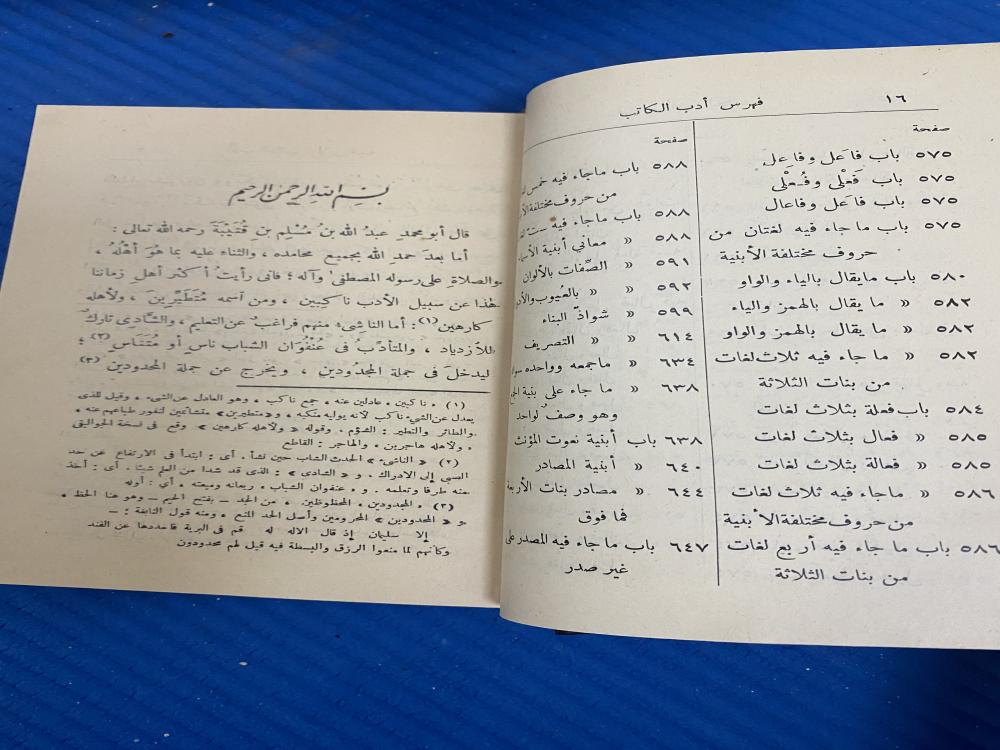 ١٦ فهرس أدب الكاتب
صفحة
٥٧٥ باب فاعَل وفاعِل
٥٧٥ باب فَعْلى وفُعْلى
٥٧٥ باب فاعَل وفاعال
٥٧٥ باب ما جاء فيه لغتان من
حروف مختلفة الأبنية
٥٨٠ باب مايقال بالياء والواو
٥٨٢ » ما يقال بالهمز والياء
٥٨٢ » ما يقال بالهمز والواو
٥٨٢ » ما جاء فيه ثلاث لغات
من بنات الثلاثة
٥٨٤ باب فعلة بثلاث لغات
٥٨٥ » فعال بثلاث لغات
٥٨٥ » فعالة بثلاث لغات
٥٨٦ » ماجاء فيه ثلاث لغات
من حروف مختلفة الأبنية
٥٨٦ باب ما جاء فيه أربع لغات
من بنات الثلاثة
صفحة
٥٨٨ باب ماجاء فيه خمس
من حروف مختلفة
٥٨٨ باب ما جاء فيه ست
٥٨٨ » معاني أبنية
٥٩١ » الصِّفات بالألوان
٥٩٢ » » بالعيوب
٥٩٩ » شواذّ البناء
٦١٤ » التصريف
٦٣٤ » ماجمعه وواحده
٦٣٨ » ما جاء على بنية
وهو وصف لواحد
٦٣٨ باب أبنية نعوت المؤنث
٦٤٠ » أبنية المصادر
٦٤٤ » مصادر بنات
فما فوق
٦٤٧ باب ما جاء فيه المصدر على
غير صدر
بسم الله الرحمن الرحيم
قال أبو محمدٍ عبدُ الله بنُ مُسْلِمِ بنِ قُتَيْبَةَ رحمه الله تعالى :
أما بعدَ حمدِ اللهِ بجميع محامده ، والثناء عليه بما هُوَ أهْلُهُ ،
والصلاةِ على رسوله المصطفى وآله ؛ فانى رأيتُ أكثَرَ أهلِ زماننا
هٰذا عن سبيل الأدب ناكِبِينَ ، ومن اسمه مُتَطَيِّرِينَ ، ولأهله
كارهين (١) : أما الناشِىء منهم فراغبٌ عن التعليم ، والشَّادِي تاركٌ
للأزدياد ، والمتأدِّبُ فى عُنْفُوَانِ الشبابِ ناسٍ أو مُتَنَاسٍ (٢) ؛
ليدخلَ فى جملة المجْدُودين ، ويخرج عن جملة المحدودين (٣)
(١) « ناكبين » عادلين عنه ، جمع ناكب ، وهو العادل عن الشىء ، وقيل للذى
يعدل عن الشىء ناكب لأنه يوليه منكبه ، و«متطيرين» متشائمين لنفور طباعهم عنه ،
والطائر والتطير : الشؤم ، وقوله « ولأهله كارهين » وقع فى نسخة الجواليقى
« ولأهله هاجرين » والهاجر : القاطع
(٢) « الناشىء » الحدث الشاب حين نشأ ، أى : ابتدأ فى الارتفاع عن حد
الصبى إلى الادراك ، و « الشادى » : الذى قد شدا من العلم شيئا ، أى : أخذ
منه طرفا وتعلمه ، و « عنفوان الشباب » ريعانه وميعته ، أى : أوله
(٣) « المجدودين » المحظوظين ، من الجد ــ بفتح الجيم ــ وهو هنا الحظ ،
و « المحدودين » المحرومين وأصل الحد المنع ، ومنه قول النابغة : ــ
إلا سليمان إذ قال الاله له قم فى البرية فاحددها عن الفند
وكأنهم لما منعوا الرزق والبسطة فيه قيل لهم محدودون